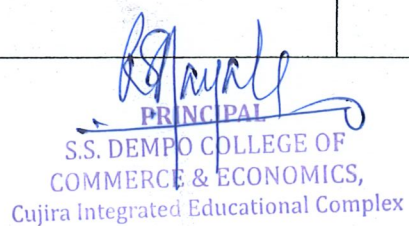 PRINCIPAL
S.S. DEMPO COLLEGE OF
COMMERCE & ECONOMICS,
Cujira Integrated Educational Complex